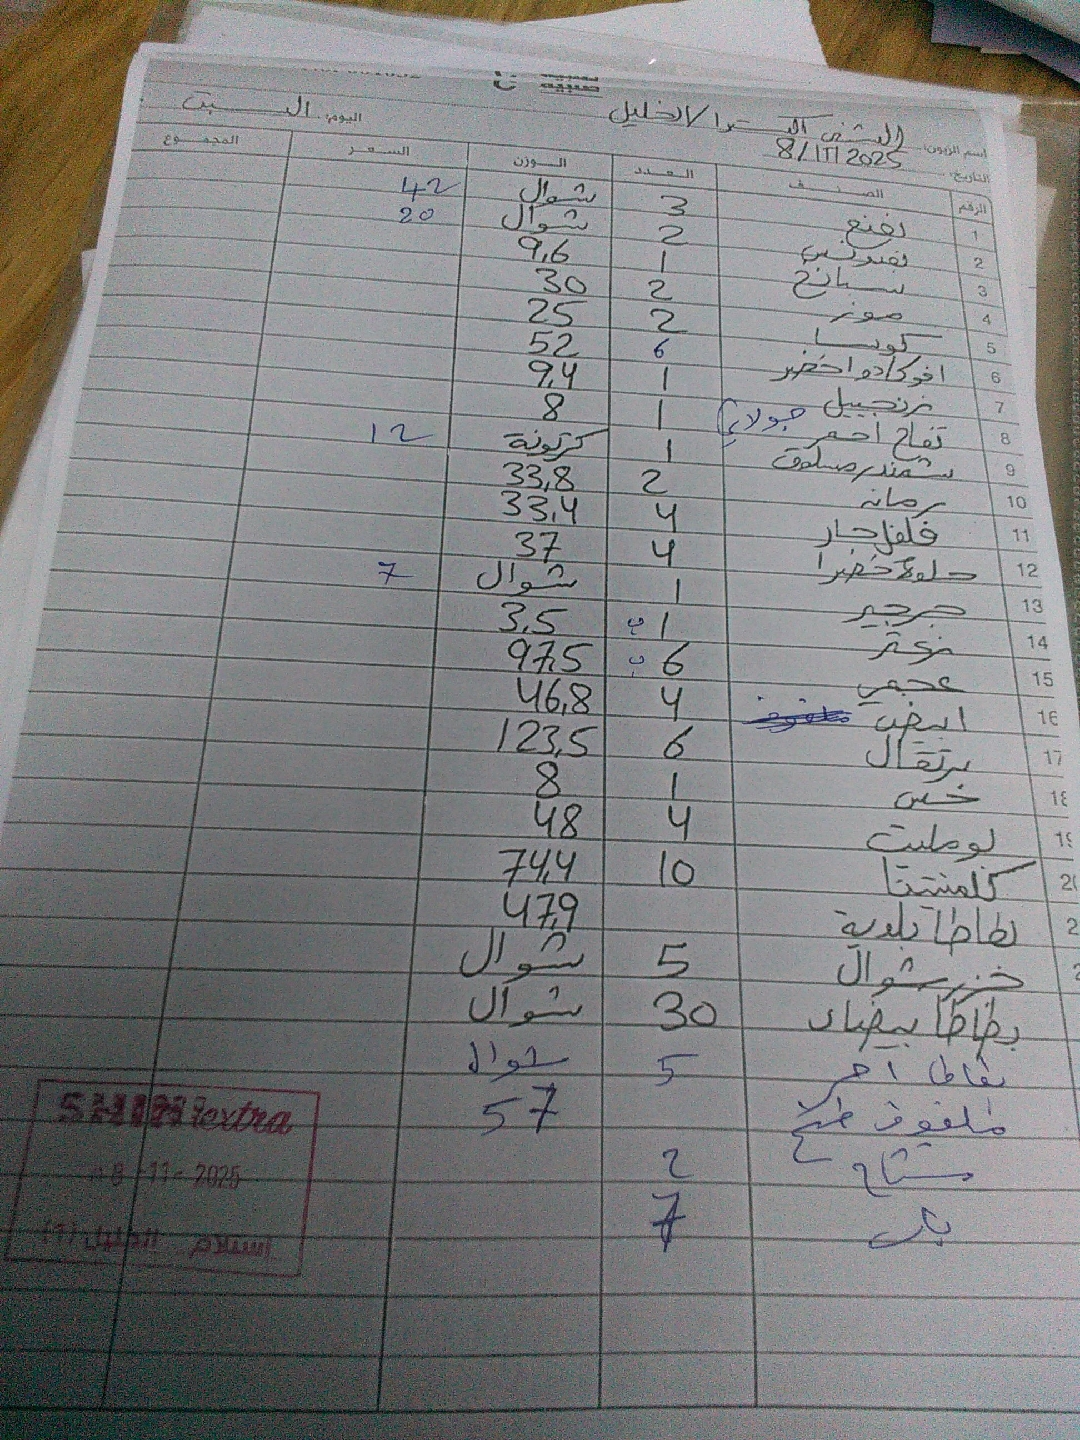 اسم الزبون: الشني اكسترا / الخليل اليوم: السبت
التاريخ: 8/11/2025
الرقم الصنف العدد الوزن السعر المجموع
1 نعنع 3 شوال 42
2 بقدونس 2 شوال 20
3 سبانخ 1 9,6
4 موز 2 30
5 كوسا 2 25
6 افوكادو اخضر 6 52
7 زنجبيل 1 9,4
8 تفاح احمر جولاني 1 8
9 شمندر مسلوق 1 كرتونة 12
10 رمانه 2 33,8
11 فلفل حار 4 33,4
12 حلوة خضرا 4 37
13 جرجير 1 شوال 7
14 زعتر 1 ب 3,5
15 عجمي 6 ب 97,5
16 ابيض 4 46,8
17 برتقال 6 123,5
18 خس 1 8
19 بوملیت 4 48
20 كلمنتينا 10 74,4
2 بطاطا بلدية 47,9
2 جزر شوال 5 شوال
بطاطا بيضاء 30 شوال
بطاطا احمر 5 شوال
ملفوف طبخ 57
2
7
SHINI extra
08-11-2025
إستلام الخليل (1)